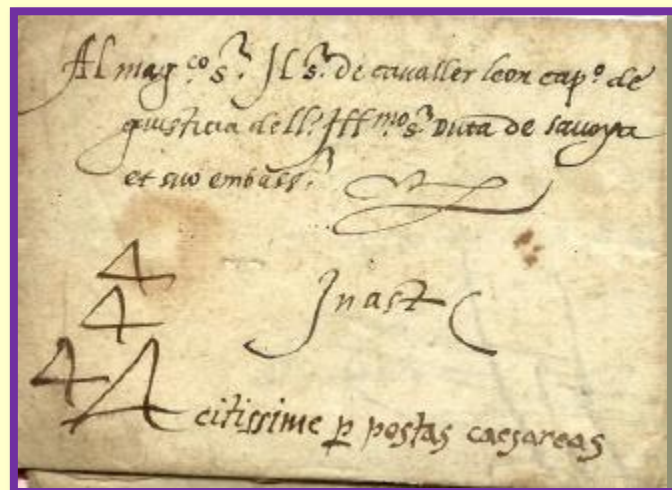 Al mag.co s.r Il s.r de cavaller leon cap.o de
giusticia dell. Ill.mo s.r Duca de savoya
et suo embass.r
4
4
4 4
In ast
citissime p postas caesareas